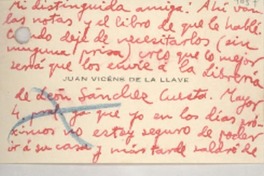 Mi distinguida amiga: Ahí van
las notas y el libro de que le hablé.
Cuando deje de necesitarlos (sin
ninguna prisa) creo que lo mejor
será que los envíe a la Librería
JUAN VICÉNS DE LA LLAVE
de León Sánchez Cuesta, Mayor
4, ya que yo en los días pró-
ximos no estoy seguro de poder
ir a su casa y más tarde saldré de